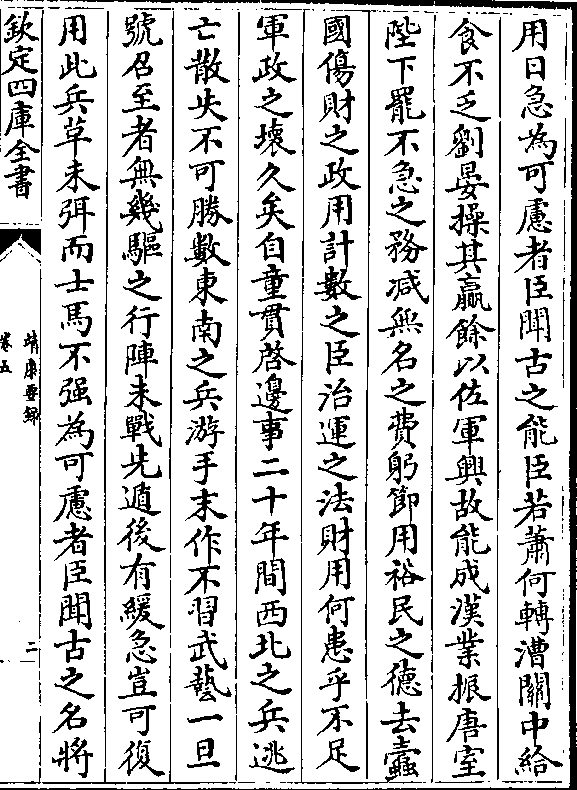 用日急為可慮者臣聞古之能臣若蕭何轉漕關中給
食不乏劉晏操其贏餘以佐軍興故能成漢業振唐室
陛下罷不急之務減無名之費躬節用裕民之德去蠧
國傷財之政用計數之臣治運之法財用何患乎不足
軍政之壞久矣自童貫啓邊事二十年間西北之兵逃
亡散失不可勝數東南之兵游手末作不習武藝一旦
號召至者無幾驅之行陣未戰先遁後有緩急豈可復
用此兵革未弭而士馬不强為可慮者臣聞古之名將
欽定四庫全書
靖康要録
卷五
二